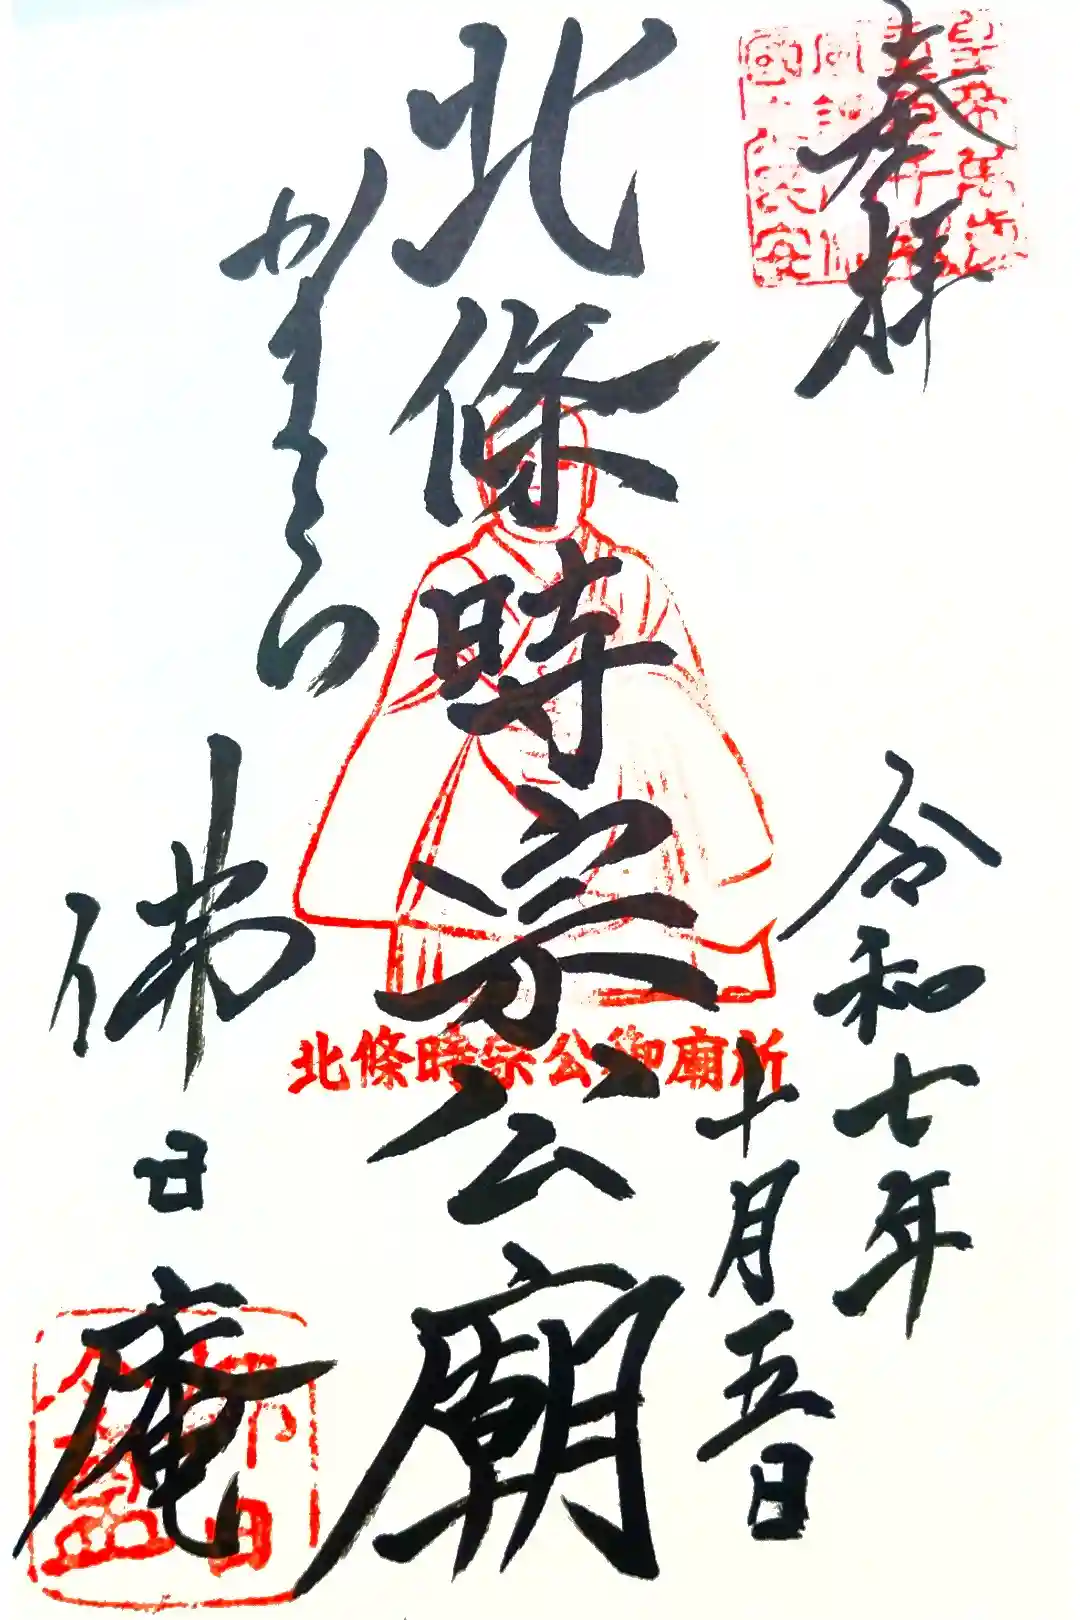 奉拝
令和七年
十月五日
北條時宗公廟
かまくら
佛日庵
北條時宗公御廟所